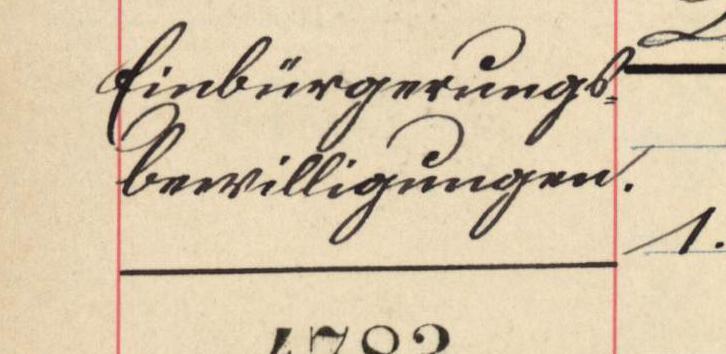 Einbürgerungs=
bewilligungen.
1.